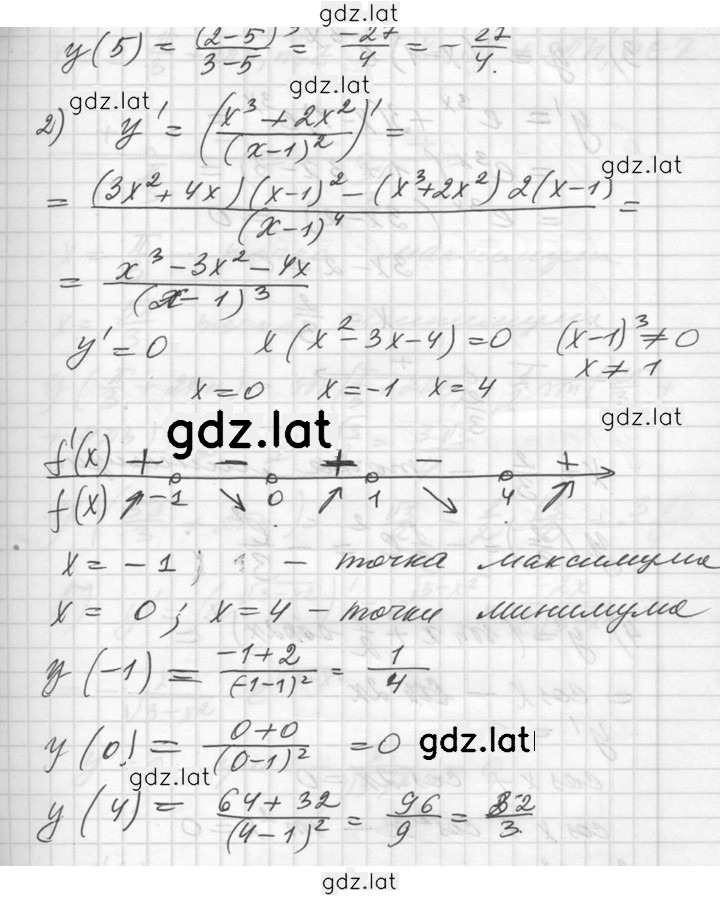 gdz.lat
y(5) = (2-5)³/(3-5) = -27/4 = - 27/4.
gdz.lat
2) y' = ((x³+2x²)/(x-1)²)' =
gdz.lat
= ((3x²+4x)(x-1)² - (x³+2x²)2(x-1))/(x-1)⁴ =
= (x³-3x²-4x)/(x-1)³
y'=0 x(x²-3x-4)=0 (x-1)³≠0
x≠1
x=0 x=-1 x=4
gdz.lat
gdz.lat
f'(x) + - + - +
f(x) ↗ -1 ↘ 0 ↗ 1 ↘ 4 ↗
x = -1 ; - точка максимума
x = 0; x=4 - точки минимума
y(-1) = (-1+2)/(-1-1)² = 1/4
y(0) = (0+0)/(0-1)² =0
gdz.lat
gdz.lat
y(4) = (64+32)/(4-1)² = 96/9 = 32/3
gdz.lat